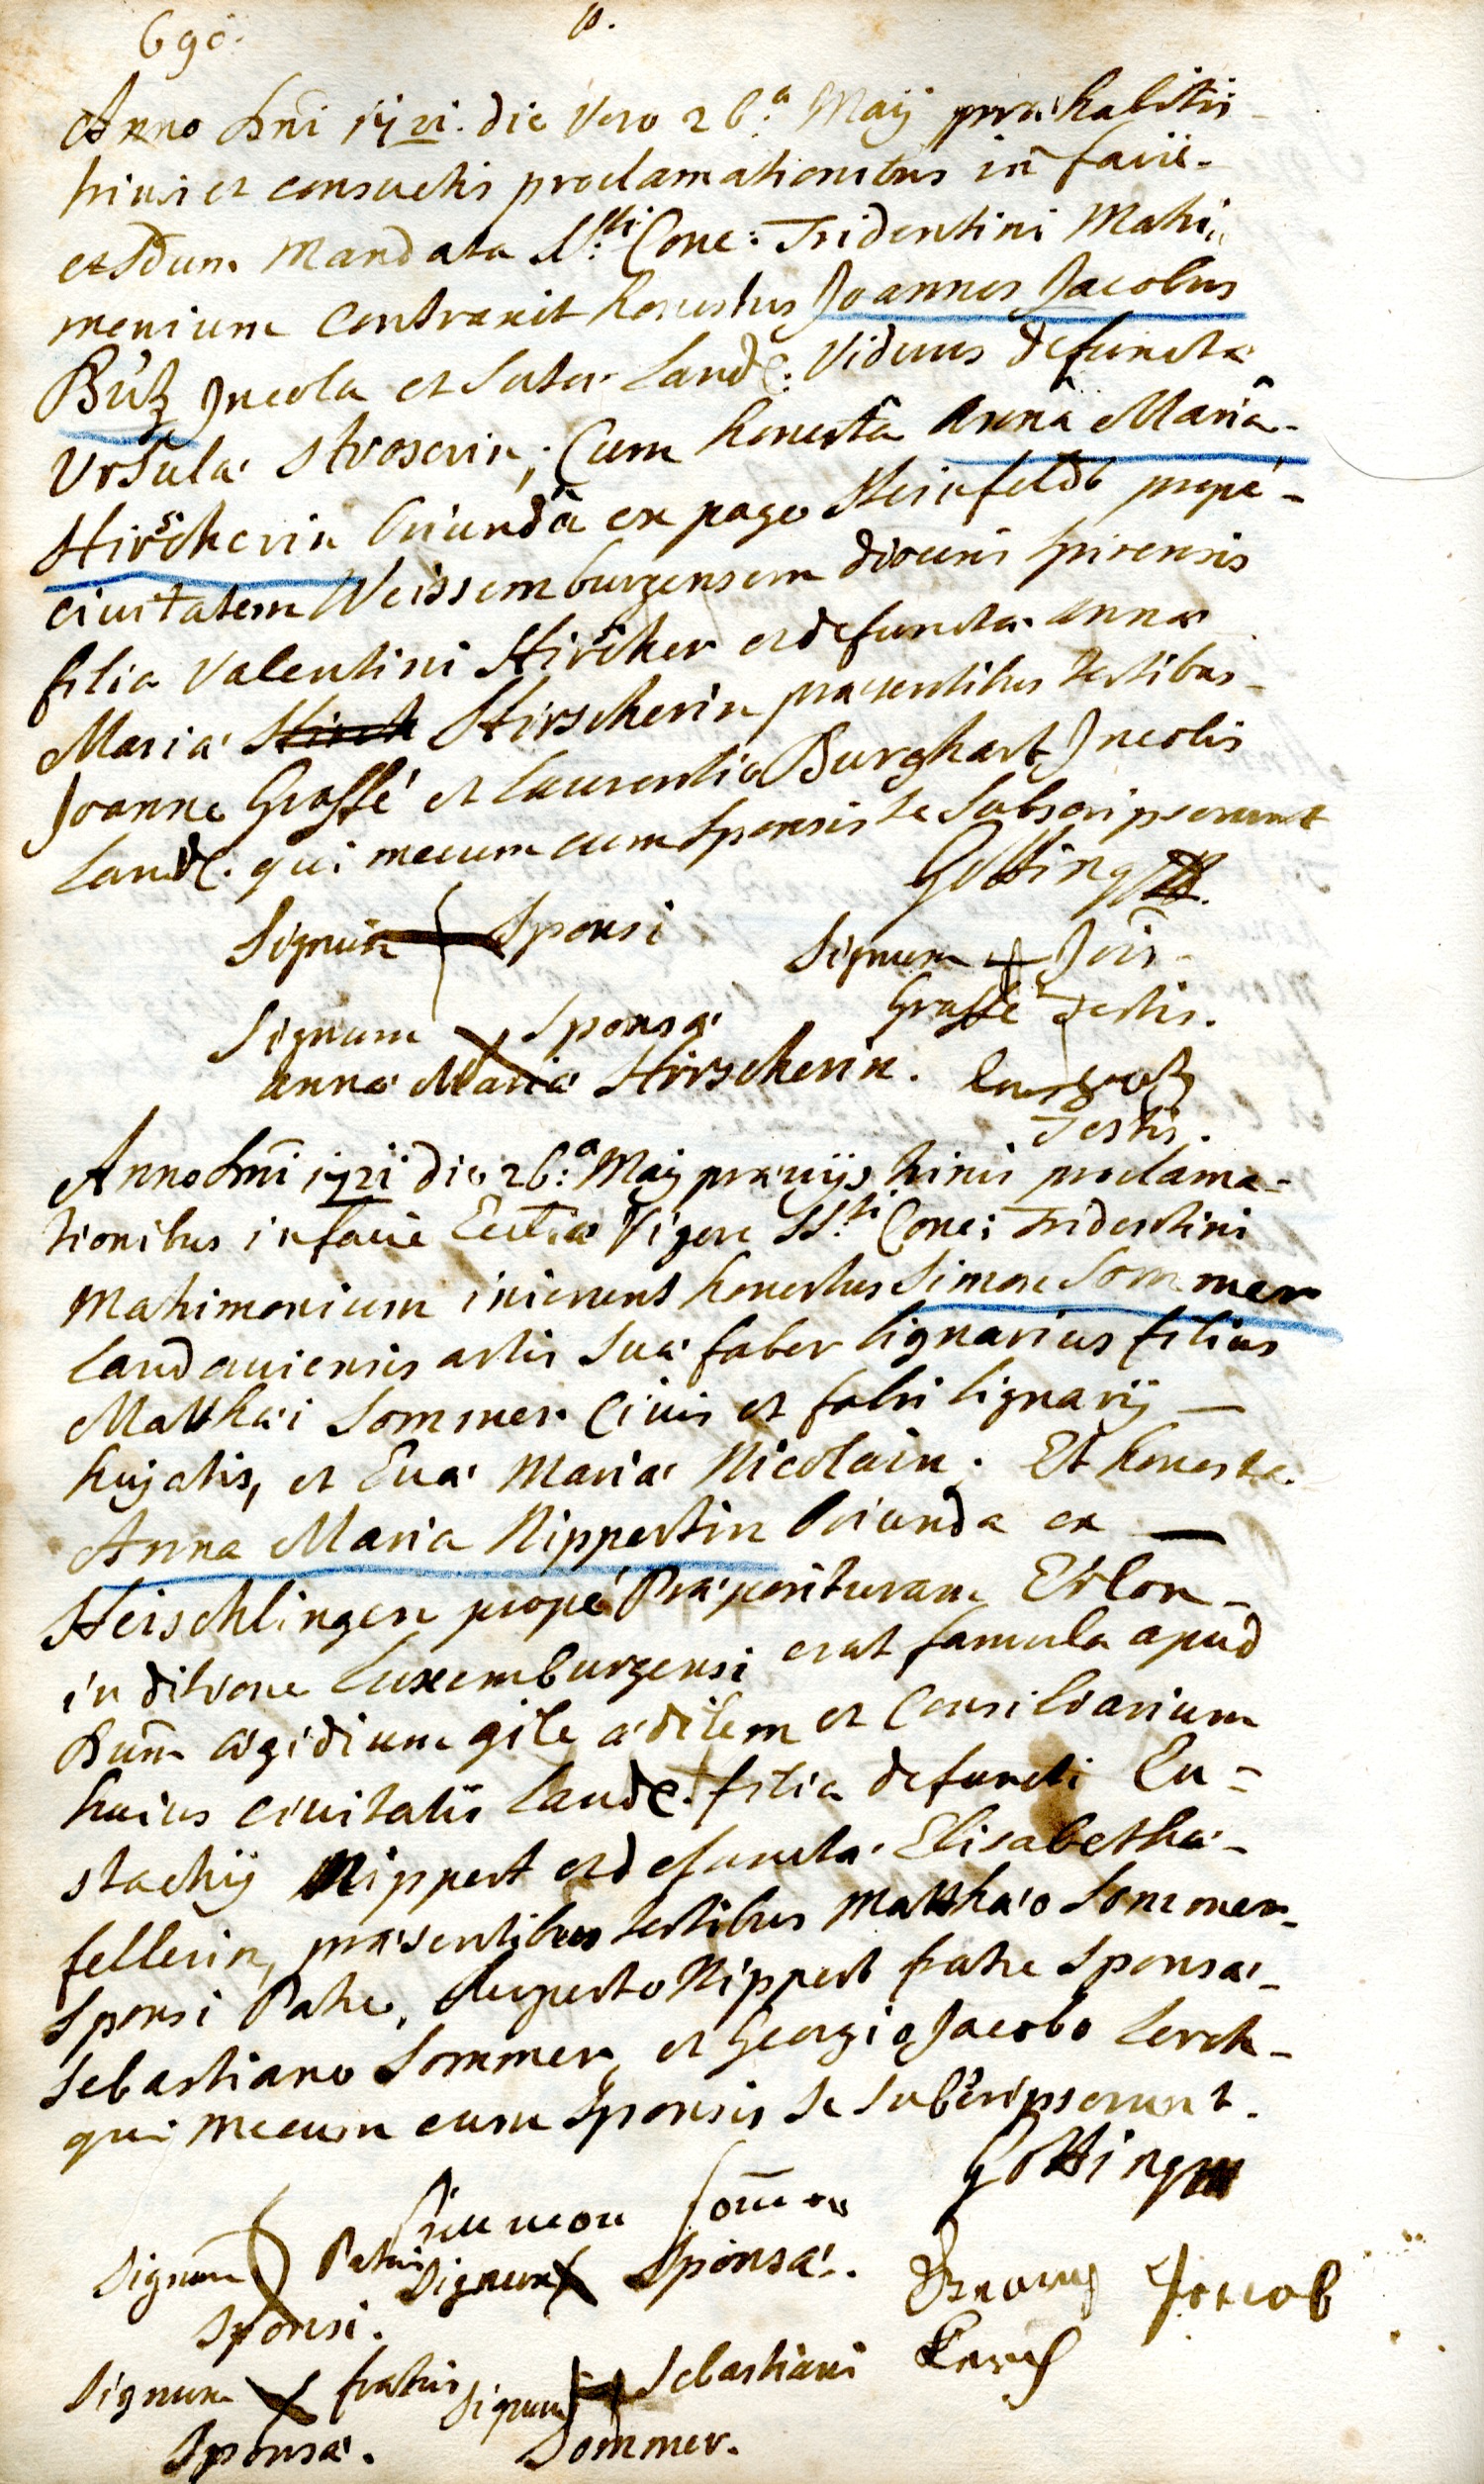 690.
Anno Dni 1721. die Vero 26.a Maij praehabitis
trinis et consuetis proclamationibus in facie
et Sdum Mandata Ssti Conc: Tridentini Matri„
monium contraxit honestus Joannes Jacobus
Bütz Incola et Sutor Landd: Viduus defunctae
Ursulae Stroserin; Cum honestâ Annâ Mariâ
Hirscherin Oriundâ ex pago Steinfeldt propè
civitatem Weissemburgensem dioecesis spirensis
filia Valentini Hirscher et defunctae Annae
Mariae Hirsch Hirscherin praesentibus testibus
Joanne Graffé et Laurentio Burghart Incolis
Landd. qui mecum cum Sponsis se Subscripserunt
Gotting
Signum Sponsi
Signum Jois
Graffé Testis.
Signum Sponsae
Annae Mariae Hirscherin.
Testis.
Anno Dni 1721 die 26.a Maij praeviis trinis proclama-
tionibus in facie Ecclae Vigore SSti Conc: Tridentini
Matrimonium inierunt honestus Simon Sommer
Landaviensis artis suae faber lignarius filius
Matthaei Sommer Civis et fabri lignarij
hujatis, et Evae Mariae Nicolain. Et honesta
Anna Maria Nippertin Oriunda ex
Heischlingen propè Praeposituram Etlon
in ditione Luxemburgensi erat famula apud
Dum Aegidium gile aedilem et Consiliarium
huius civitatis Landd. filia defuncti Eu-
stachij Nippert et defunctae Elisabethae
fellerin, praesentibus testibus Matthaeo Sommer
Sponsi Patre, Ruperto Nippert fratre Sponsae
Sebastiano Sommer, et Georgio Jacobo Lerch
qui mecum cum Sponsis se Subscripserunt.
Gotting
Simmon Somer
Signum Patris Signum Sponsae.
Sponsi.
Georg Jacob
Lerch
Signum fratris Signum Sebastiani
Sponsae. Sommer.